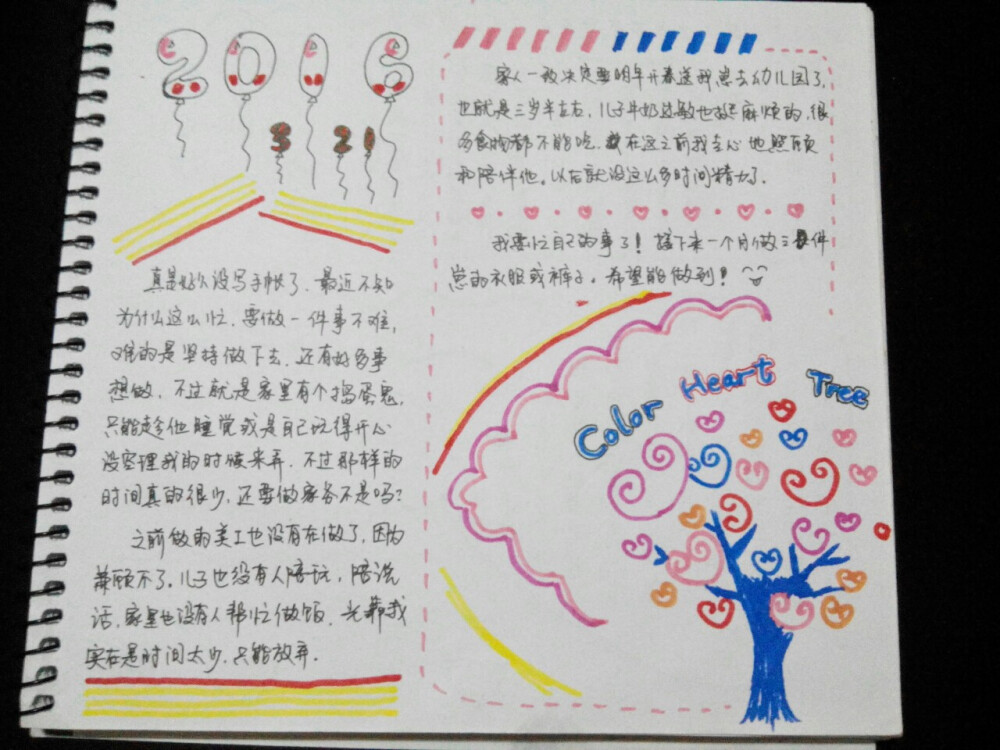 2016
3 21
真是好久没写手帐了，最近不知
为什么这么忙，要做一件事不难，
难的是坚持做下去，还有好多事
想做，不过就是家里有个捣蛋鬼，
只能趁他睡觉或是自己玩得开心
没空理我的时候来弄，不过那样的
时间真的很少，还要做家务不是吗？
之前做的美工也没有在做了，因为
兼顾不了。儿子也没有人陪玩，陪说
话，家里也没有人帮忙做饭，光靠我
实在是时间太少，只能放弃．
家人一致决定要明年开春送我崽去幼儿园了，
也就是三岁半左右，儿子牛奶过敏也挺麻烦的，很
多食物都不能吃，在这之前我去心地照顾
和陪伴他。以后就没这么多时间精力了．
我要忙自己的事了！接下来一个月做三件
崽的衣服或裤子。希望能做到！
Color Heart Tree